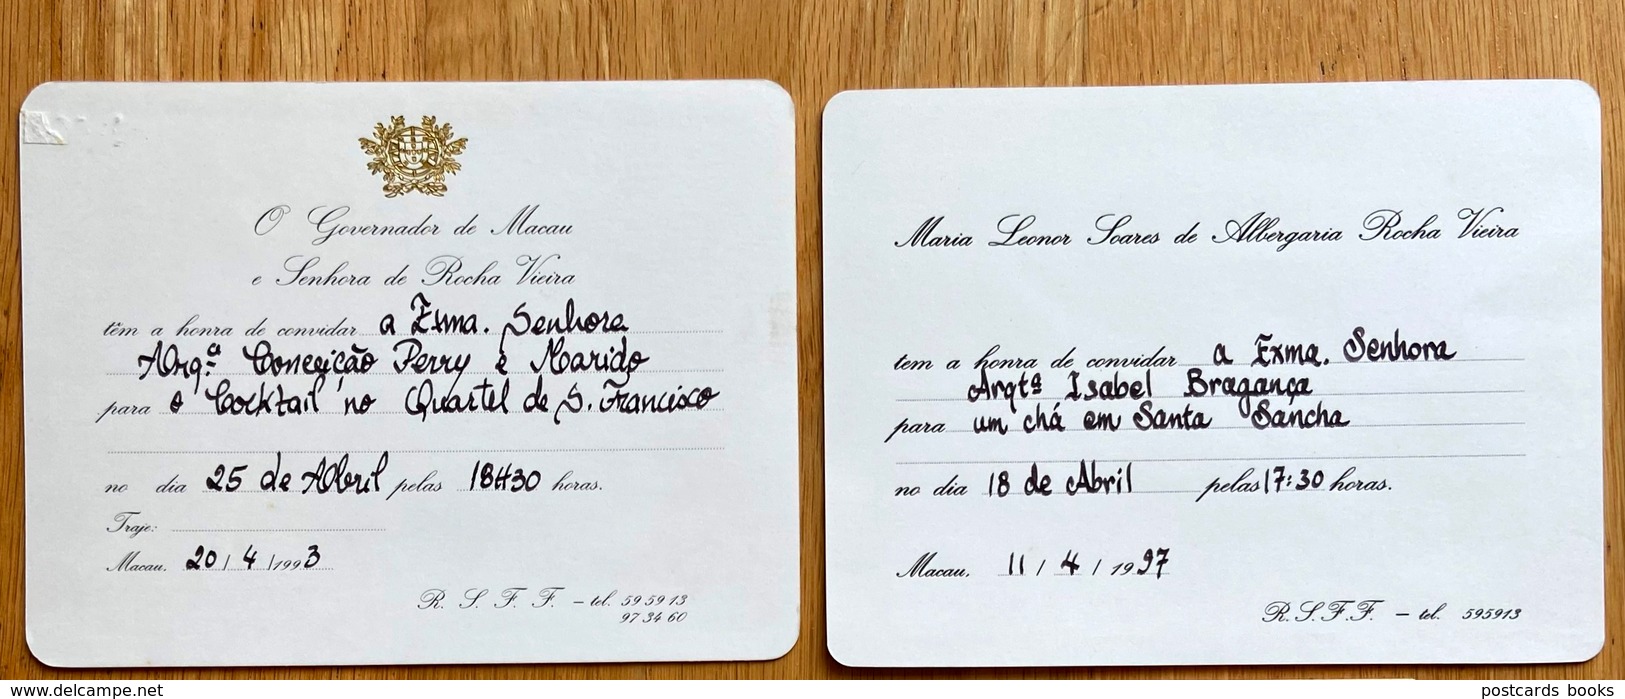 O Governador de Macau
e Senhora de Rocha Vieira
têm a honra de convidar a Exma. Senhora
Arq.ª Conceição Perry e Marido
para o "Cocktail" no Quartel de S. Francisco
no dia 25 de Abril pelas 18H30 horas.
Traje:
Macau, 20 / 4 / 1993
R. S. F. F. – tel. 59 59 13
97 34 60
Maria Leonor Soares de Albergaria Rocha Vieira
tem a honra de convidar a Exma. Senhora
Arqtª Isabel Bragança
para um chá em Santa Sancha
no dia 18 de Abril pelas 17:30 horas.
Macau, 11 / 4 / 1997
R.S.F.F. – tel. 595913
www.delcampe.net
postcards books